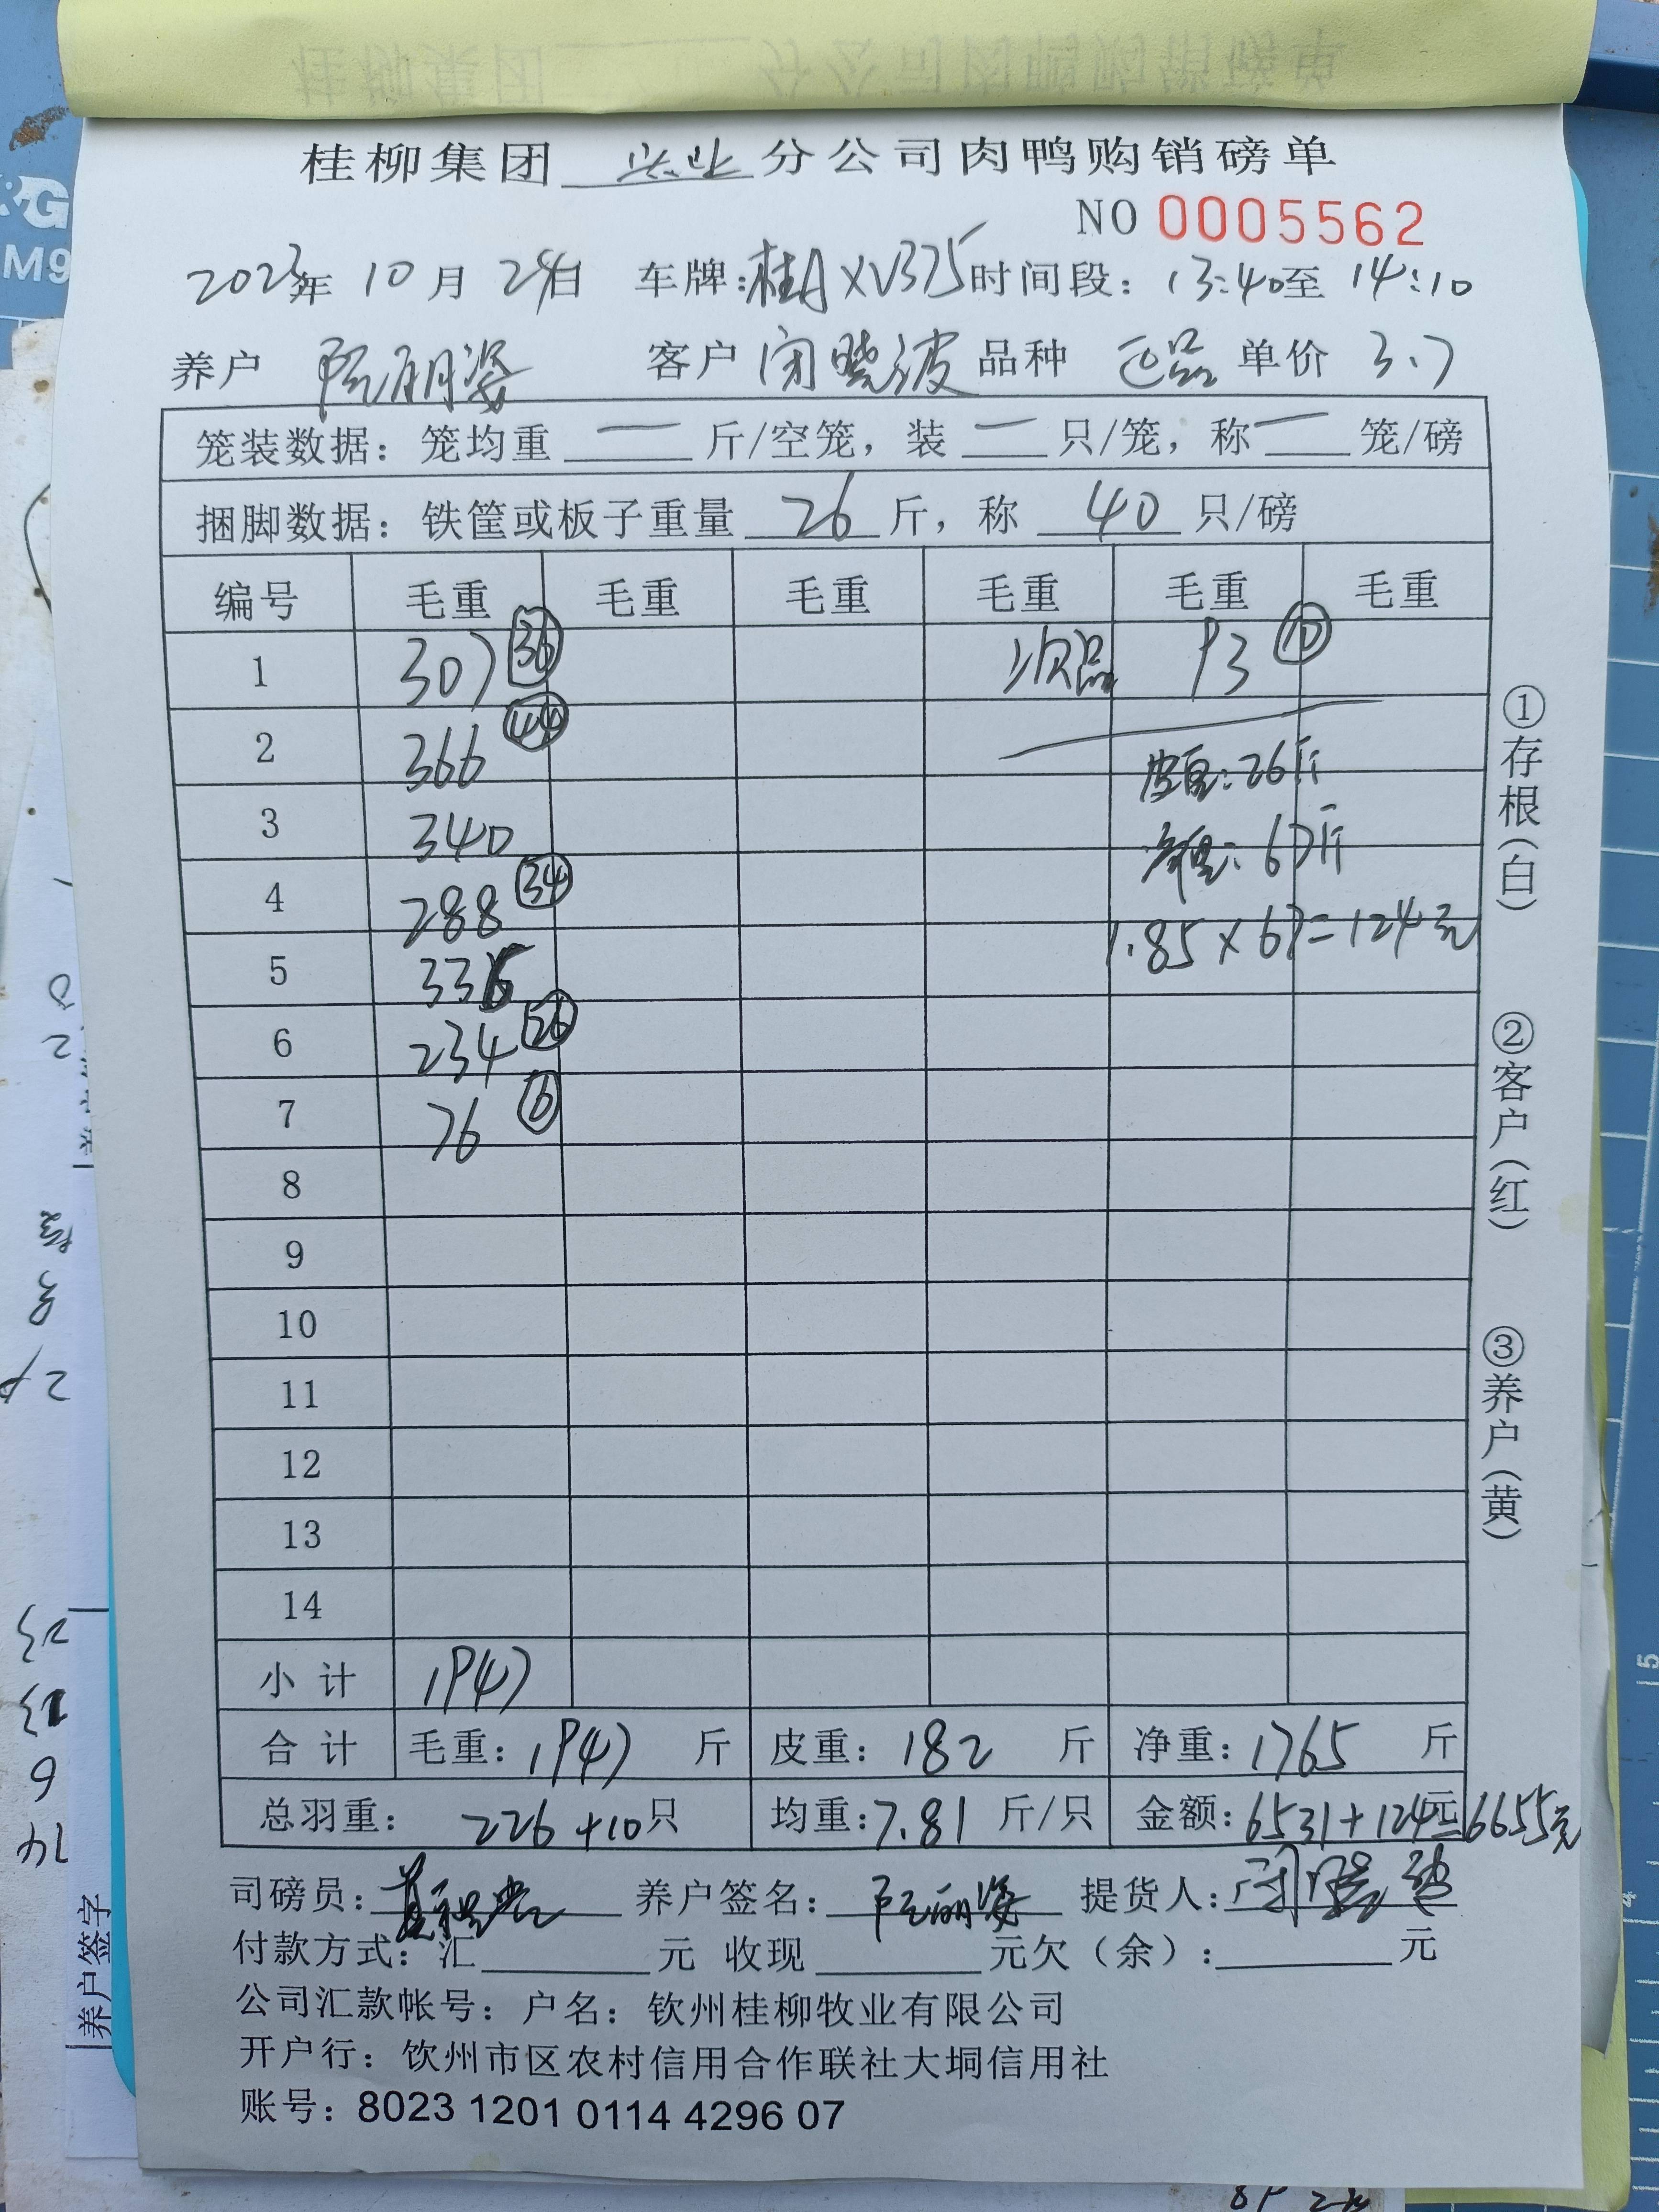 桂柳集团 兴业 分公司肉鸭购销磅单
NO 0005562
2023年 10月 24日 车牌：桂A XV375 时间段：13:40至 14:10
养户 阮丽姿 客户 闭晓波 品种 正品 单价 3.7
笼装数据：笼均重 — 斤/空笼，装 — 只/笼，称 — 笼/磅
捆脚数据：铁筐或板子重量 26 斤，称 40 只/磅
编号 毛重 毛重 毛重 毛重 毛重 毛重
1 307 36 次品 93 10
2 366 44 皮重：26斤
3 340 净重：67斤
4 288 34 1.85×67=124元
5 336
6 234 26
7 76 6
8
9
10
11
12
13
14
小计 1947
合计 毛重：1947 斤 皮重：182 斤 净重：1765 斤
总羽重： 226+10只 均重：7.81 斤/只 金额：6531+124元=6655元
司磅员： 养户签名：阮丽姿 提货人：闭晓波
付款方式：汇 元 收现 元欠（余）： 元
公司汇款帐号：户名：钦州桂柳牧业有限公司
开户行：钦州市区农村信用合作联社大垌信用社
账号：8023 1201 0114 4296 07
①存根（白）
②客户（红）
③养户（黄）
养户签字
&G
M9